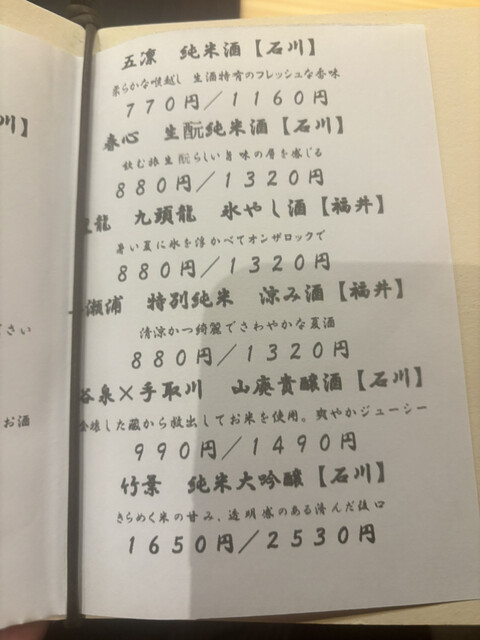 五凛　純米酒【石川】
柔らかな喉越し　生酒特有のフレッシュな香味
770円／1160円
春心　生酛純米酒【石川】
飲む抜生酛らしい旨味の層を感じる
880円／1320円
龍　九頭龍　氷やし酒【福井】
暑い夏に氷を浮かべてオンザロックで
880円／1320円
瀬浦　特別純米　涼み酒【福井】
清涼かつ綺麗でさわやかな夏酒
880円／1320円
谷泉×手取川　山廃貴醸酒【石川】
した蔵から救出してお米を使用。爽やかジューシー
990円／1490円
竹葉　純米大吟醸【石川】
きらめく米の甘み、透明感のある澄んだ後口
1650円／2530円
川】
さい
お酒